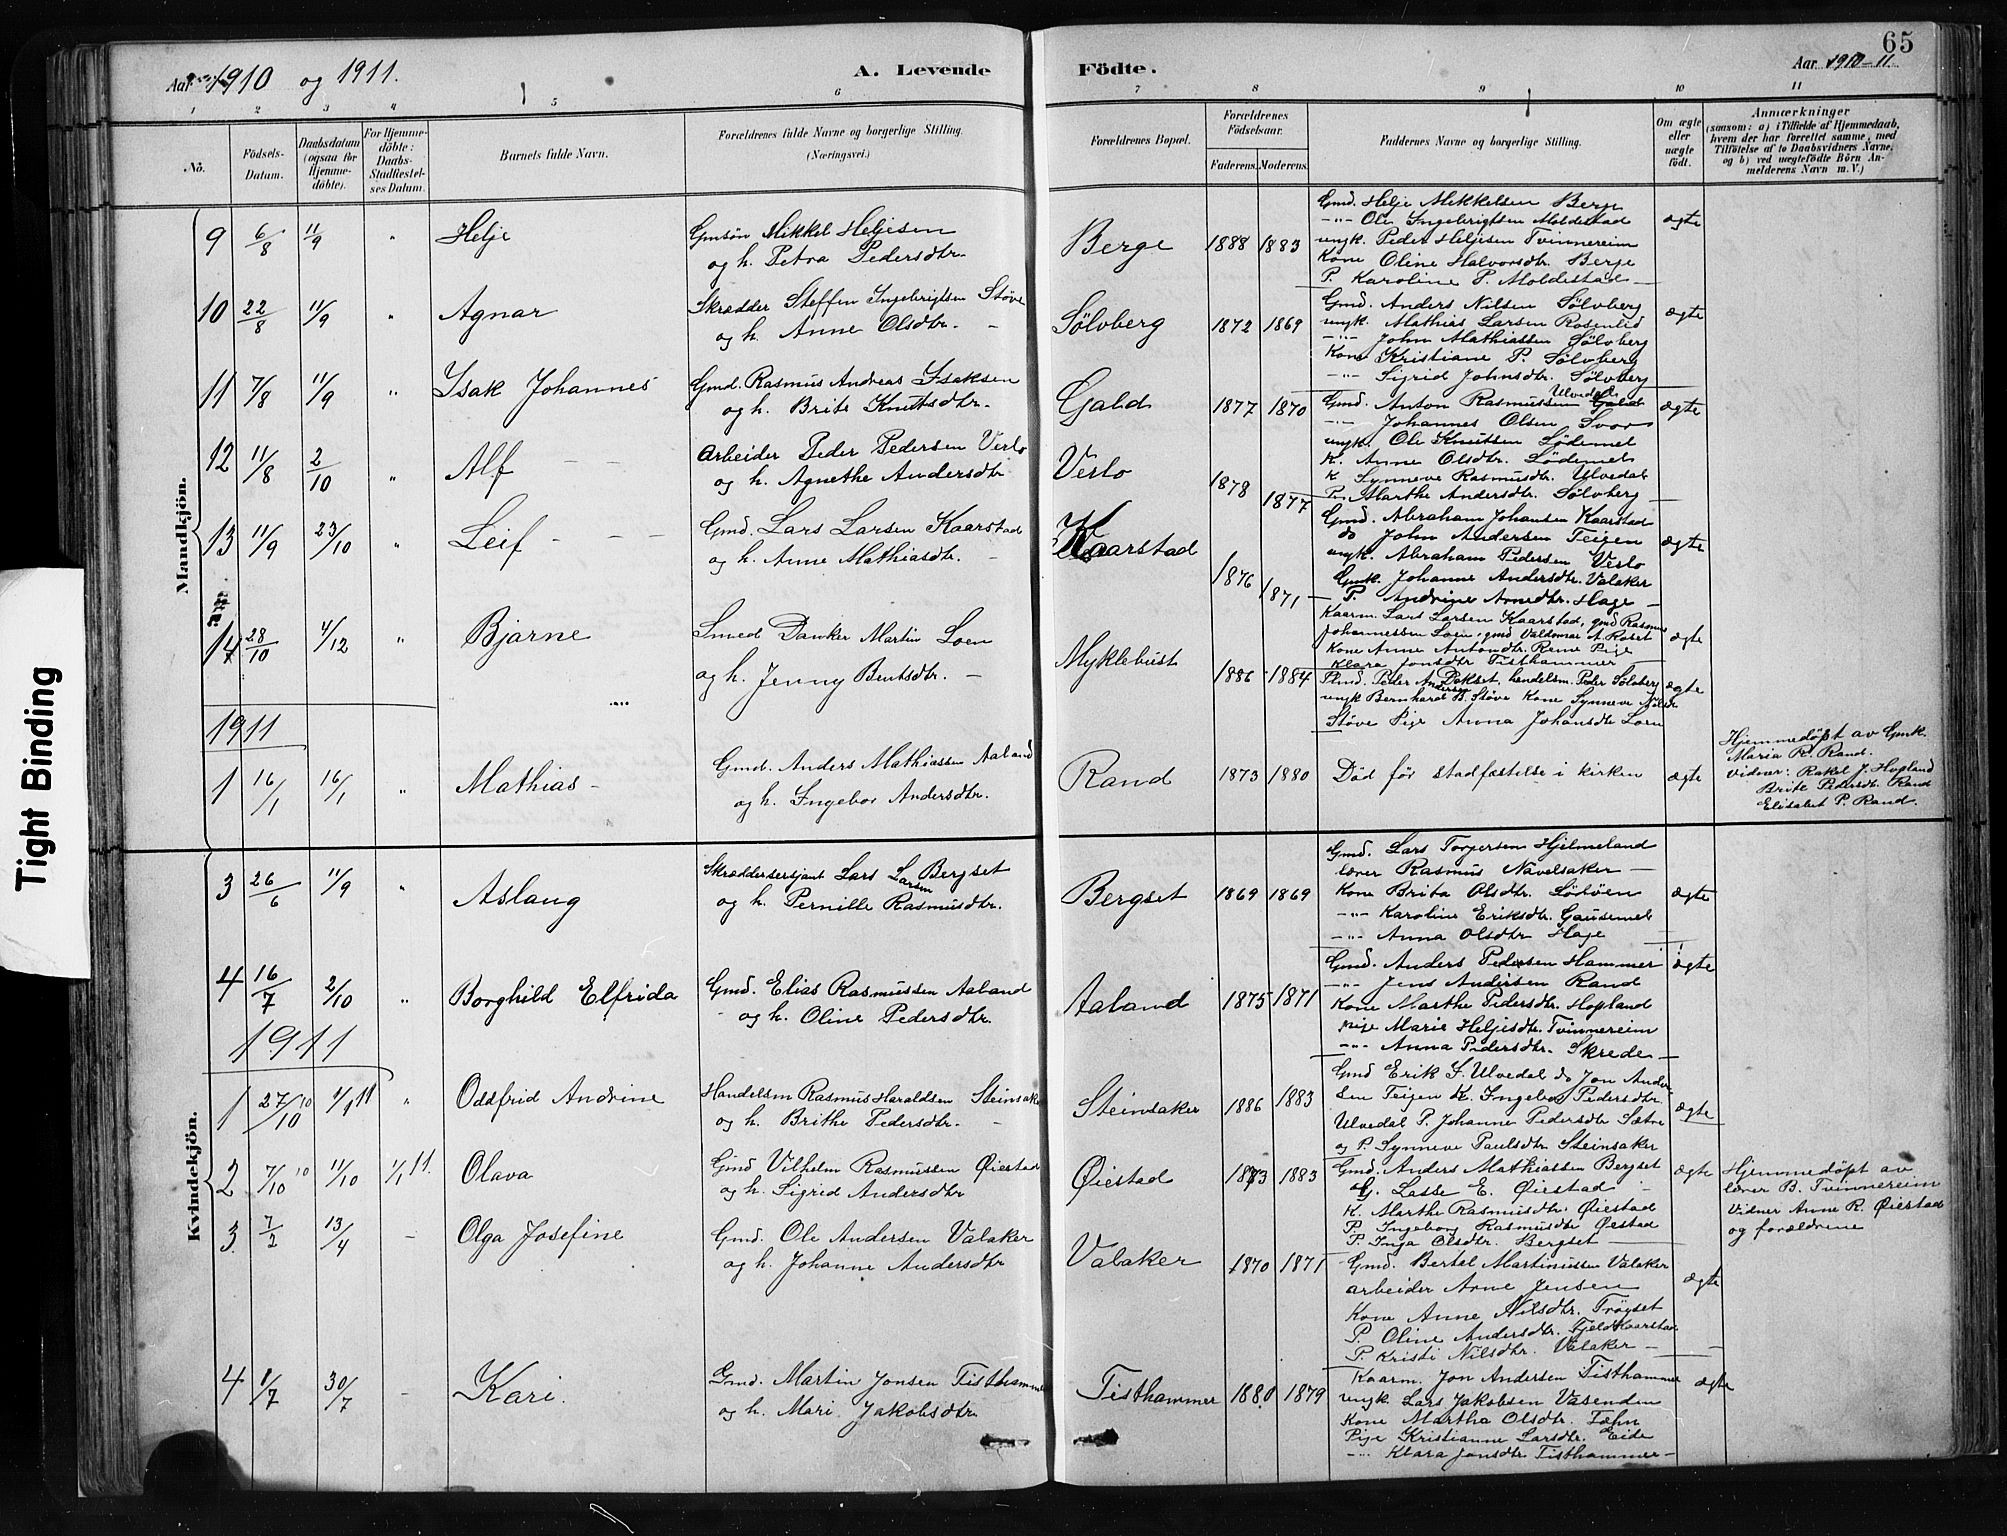 65
Aar 1910 og 1911.
A. Levende Födte.
Aar 1910-11
1 2 3 4 5 6 7 8 9 10 11
No.
Födsels-Datum.
Daabsdatum (ogsaa for Hjemme-döbte).
For Hjemme-döbte: Daabs-Stadfæstel-ses Datum.
Barnets fulde Navn.
Forældrenes fulde Navne og borgerlige Stilling. (Næringsvei.)
Forældrenes Bopæl.
Forældrenes Födselsaar.
Faderens. Moderens.
Faddernes Navne og borgerlige Stilling.
Om ægte eller uægte födt.
Anmærkninger
(saasom: a) i Tilfælde af Hjemmedaab,
hvem der har forrettet samme, med
Tilföielse af to Daabsvidners Navne,
og b) ved uægtefödte Börn An-
melderens Navn m. V.)
Tight Binding
Mandkjön.
9 6/8 11/9 " Helje
Gmsön Mikkel Heljesen
og h. Petra Pedersdtr.
Berge 1888 1883
Gmd. Helje Mikkelsen Berge
-"- Ole Ingebrigtsen Moldestad
ungk. Peder Heljesen Tvinnereim
Kone Oline Halvorsdtr. Berge
P. Karoline P. Moldestad
ægte
10 22/8 11/9 " Agnar
Skrædder Steffen Ingebrigtsen Støve
og h. Anne Olsdtr. -
Sölvberg 1872 1869
Gmd. Anders Nilsen Sölvberg
ungk. Mathias Larsen Rosenlid
-"- John Mathiassen Sölvberg
Kone Kristiane P. Sölvberg
-"- Sigrid Johnsdtr. Sölvberg
ægte
11 7/8 11/9 " Isak Johannes
Gmd. Rasmus Andreas Isaksen
og h. Brite Knutsdtr.
Gald 1877 1870
Gmd. Anton Rasmussen Ulvedal
-"- Johannes Olsen Svor
ungk. Ole Knutsen Lödemel
K. Anne Olsdtr. Lödemel
K Synneve Rasmusdtr. Ulvedal
P. Marthe Andersdtr. Sölvberg
ægte
12 11/8 2/10 " Alf
Arbeider Peder Pedersen Verlo
og h. Agnethe Andersdtr
Verlo 1878 1877
13 11/9 23/10 " Leif
Gmd. Lars Larsen Kaarstad
og h. Anne Mathiasdtr. -
Kaarstad 1876 1871
Gmd. Abraham Johansen Kaarstad
do John Andersen Teigen
ungk. Abraham Pedersen Verlo
Gmk. Johanne Andersdtr. Valaker
P. Andrine Arnedtr. Hage
ægte
14 28/10 4/12 " Bjarne
Smed Danker Martin Loen
og h. Jenny Bentsdtr. -
Myklebust 1886 1884
Kaarm. Lars Larsen Kaarstad, gmd Rasmus
Johannessen Loen, gmd Valdemar A. Roset
Kone Anne Antondtr. Renne Pige
Klara Jonsdtr Tisthammer
ægte
Peder Andersen Dokset, handelsm. Peder Sölvberg
ungk Bernhard B. Støve Kone Synneve
Støve Pige Anna Johansdtr Loen
ægte
1911
1 16/1 16/1 " Mathias
Gmd. Anders Mathiassen Aaland
og h. Ingebor Andersdtr.
Rand 1873 1880
Död før stadfæstelse i kirken
ægte
Hjemmedøpt av Gmk.
Maria R. Rand.
Vidner: Rakel J. Hogland
Brite Pedersdtr. Rand
Elisabet P. Rand.
Kvindekjön.
3 26/6 11/9 " Aslaug
Skræddersersjant Lars Larsen Bergset
og h. Pernille Rasmusdtr.
Bergset 1869 1869
Gmd. Lars Torgersen Hjelmeland
lærer Rasmus Navelsaker
Kone Brita Olsdtr. Sörløen
-"- Karoline Eriksdtr. Gausemel
-"- Anna Olsdtr Hage
ægte
4 16/7 2/10 " Borghild Elfrida
Gmd. Elias Rasmussen Aaland
og h. Oline Pedersdtr.
Aaland 1875 1871
Gmd. Anders Pedersen Hammer
-"- Jens Andersen Rand
Kone Marthe Pedersdtr. Hopland
pige Marie Heljesdtr. Tvinnereim
-"- Anna Pedersdtr. Skrede
ægte
1911
1 27/10 10 1/1 11 " Oddfrid Andrine
Handelsm Rasmus Haraldsen Steinsaker
og h. Brithe Pedersdtr. -
Steinsaker 1886 1883
Gmd Erik S. Ulvedal do Jon Ander-
sen Teigen K. Ingebor Pedersdtr.
Ulvedal P. Johanne Pedersdtr Sætre
og P. Synneve Paulsdtr Steinsaker
ægte
2 7/10 10 11/10 1/1 11. Olava
Gmd Vilhelm Rasmussen Øiestad
og h. Sigrid Andersdtr
Øiestad 1873 1883
Gmd. Anders Mathiassen Bergset
G. Lasse E. Øiestad
K. Marthe Rasmusdtr. Øiestad
P. Ingeborg Rasmusdtr Øiestad
P. Inga Olsdtr. Bergset
ægte
Hjemmedøpt av
lærer B. Tvinnereim
Vidner Anne R. Øiestad
og forældrene
3 7/2 13/4 - Olga Josefine
Gmd. Ole Andersen Valaker
og h. Johanne Andersdtr
Valaker 1870 1871
Gmd. Bertel Martinussen Valaker
arbeider Arne Jensen
Kone Anne Nilsdtr. Tröyset
P. Oline Andersdtr. Fjeldkaarstad
P. Kristi Nilsdtr. Valaker
ægte
4 1/7 30/7 - Kari.
Gmd. Martin Jonsen Tisthammer
og h. Mari Jakobsdtr.
Tisthammer 1880 1879
Kaarm. Jon Andersen Tisthammer
ungk. Lars Jakobsen Vasenden
Kone Martha Olsdtr. Tæhn
Pige Kristianne Larsdtr. Eide
-"- Klara Jonsdtr Tisthammer
ægte